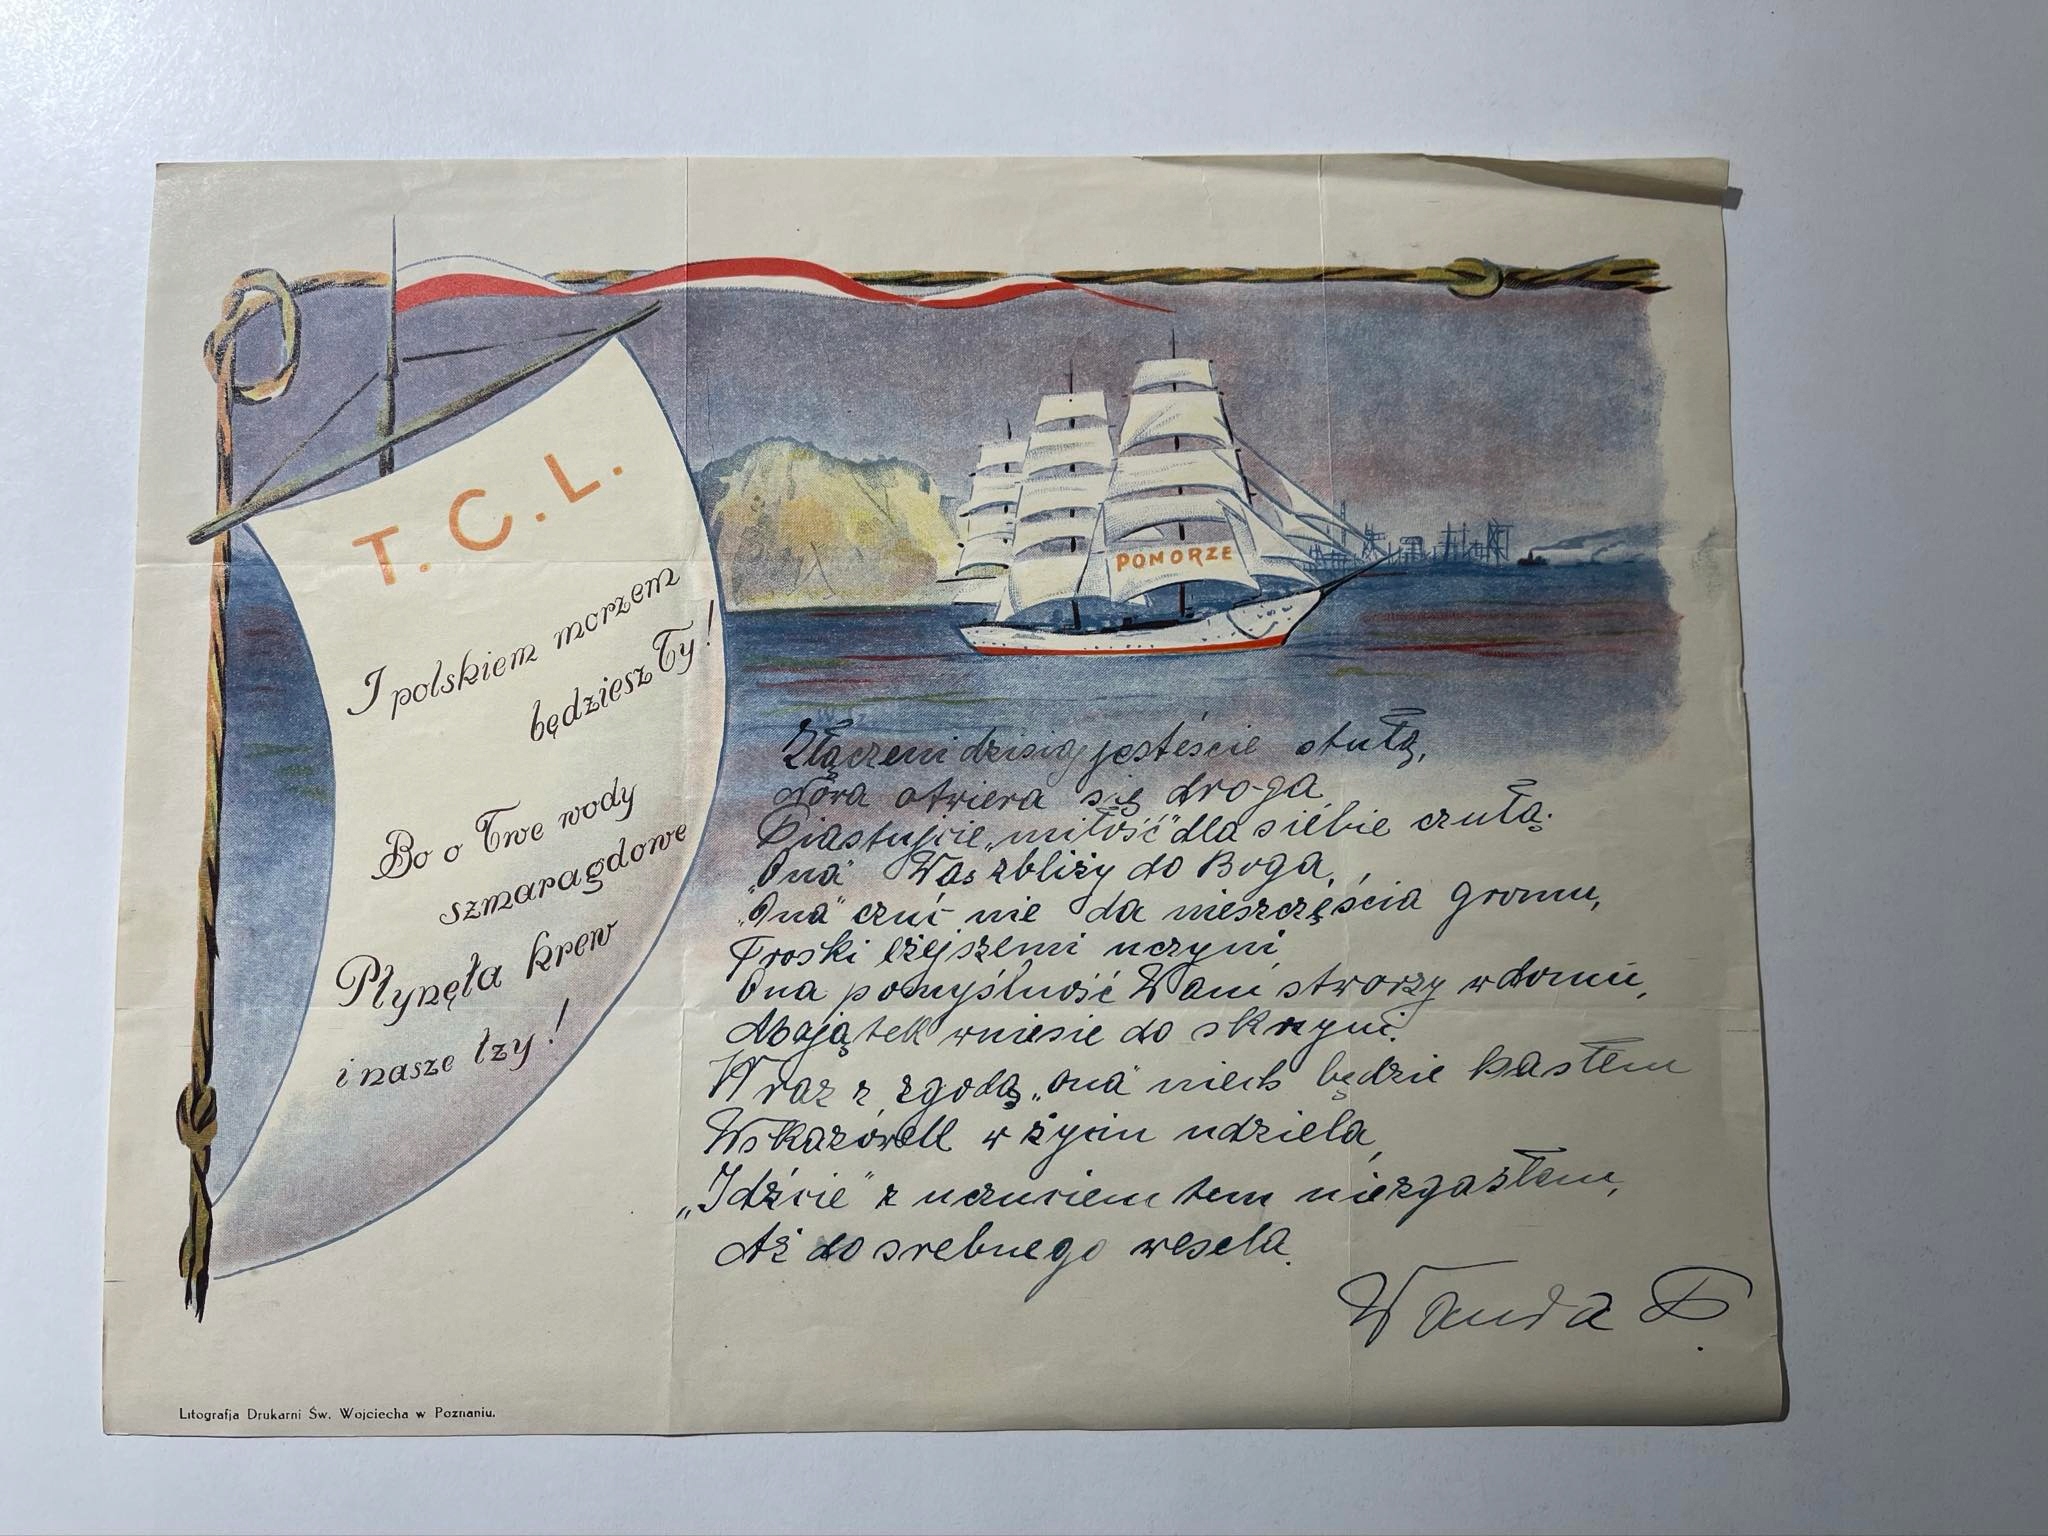 T. C. L.
I polskiem morzem
będziesz Ty!
Bo o Twe wody
szmaragdowe
Płynęła krew
i nasze łzy!
POMORZE
Złączeni dzisiaj jesteście stułą,
Nowa otwiera się droga
Piastujcie „miłość” dla siebie czułą.
„Ona” Was zbliży do Boga,
„Ona” czuć nie da nieszczęścia gromu,
Troski lżejszemi uczyni,
Ona pomyślność Wam stworzy w domu,
Majątek wniesie do skrzyni.
Wraz z zgodą „ona” niech będzie hasłem
Wskazówek w życiu udziela,
„Idźcie” z uczuciem tem niezgasłem,
Aż do srebnego wesela.
Wanda P.
Litografja Drukarni Św. Wojciecha w Poznaniu.